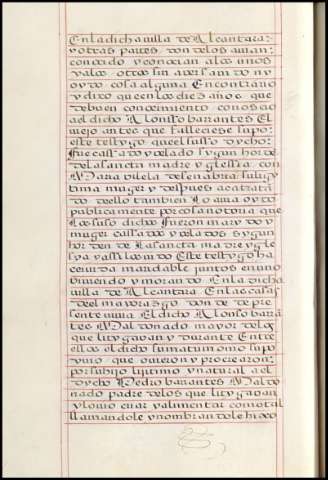 En la dicha villa de Alcantara y
y otras partes donde los avian
conocido y conocian a los unos
y a los otros sin aver sabido ny
oydo cosa alguna En contrario
y dixo que en los diez años e que
tubieron conocimiento conoscio
a el dicho Alonsso barrantes El
viejo antes que fallesciese supo
este testygo que el susso dycho
fue cassado y velado segun horde
de la sancta madre yglessia con
Maria vilela de sanabria su ligi
tima muger y despues aca trata
do de ello tambien Lo a ma oydo
publicamente por cosa notoria que
Los suso dichos fueron marydo y
muger cassados y velados segun
horden de La sancta madre ygle
sya y assi los vido Este testygo ha
cer vida maridable juntos en uno
biviendo y morando En la dicha
villa de Alcantara En las casas
del mayorazgo donde de pre
sente vivia El dicho Alonso barrã
tes Maldonado mayor de los
que litygavan y Durante Entre
ellos el dicho su matrimonio supo
y vio que ovieron y procrearon
por su hijo ligitimo y natural a el
dycho Pedro barrantes Maldo
nado padre de los que lityg avan
y lo vio criar y alimentar como tal
llamandole y nombrandole hixo